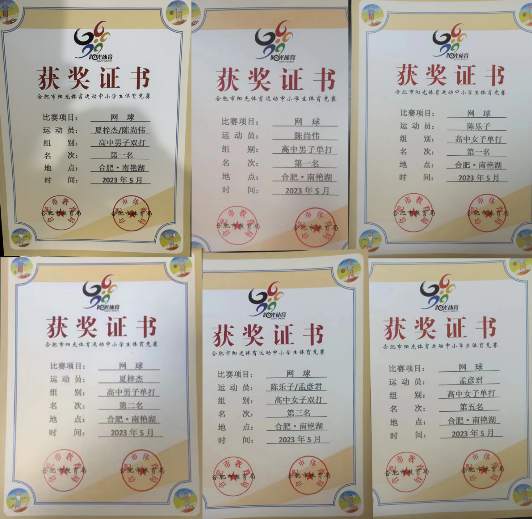 阳光体育
获奖证书
合肥市阳光体育运动中小学生体育竞赛
比赛项目: 网 球
运 动 员: 夏梓杰/陈尚伟
组 别: 高中男子双打
名 次: 第一名
地 点: 合肥·南艳湖
时 间: 2023 年 5 月
阳光体育
获奖证书
合肥市阳光体育运动中小学生体育竞赛
比赛项目: 网 球
运 动 员: 陈尚伟
组 别: 高中男子单打
名 次: 第一名
地 点: 合肥·南艳湖
时 间: 2023 年 5 月
阳光体育
获奖证书
合肥市阳光体育运动中小学生体育竞赛
比赛项目: 网 球
运 动 员: 陈乐子
组 别: 高中女子单打
名 次: 第一名
地 点: 合肥·南艳湖
时 间: 2023 年 5 月
阳光体育
获奖证书
合肥市阳光体育运动中小学生体育竞赛
比赛项目: 网 球
运 动 员: 夏梓杰
组 别: 高中男子单打
名 次: 第二名
地 点: 合肥·南艳湖
时 间: 2023 年 5 月
阳光体育
获奖证书
合肥市阳光体育运动中小学生体育竞赛
比赛项目: 网 球
运 动 员: 陈乐子/孟彦君
组 别: 高中女子双打
名 次: 第三名
地 点: 合肥·南艳湖
时 间: 2023 年 5 月
阳光体育
获奖证书
合肥市阳光体育运动中小学生体育竞赛
比赛项目: 网 球
运 动 员: 孟彦君
组 别: 高中女子单打
名 次: 第五名
地 点: 合肥·南艳湖
时 间: 2023 年 5 月